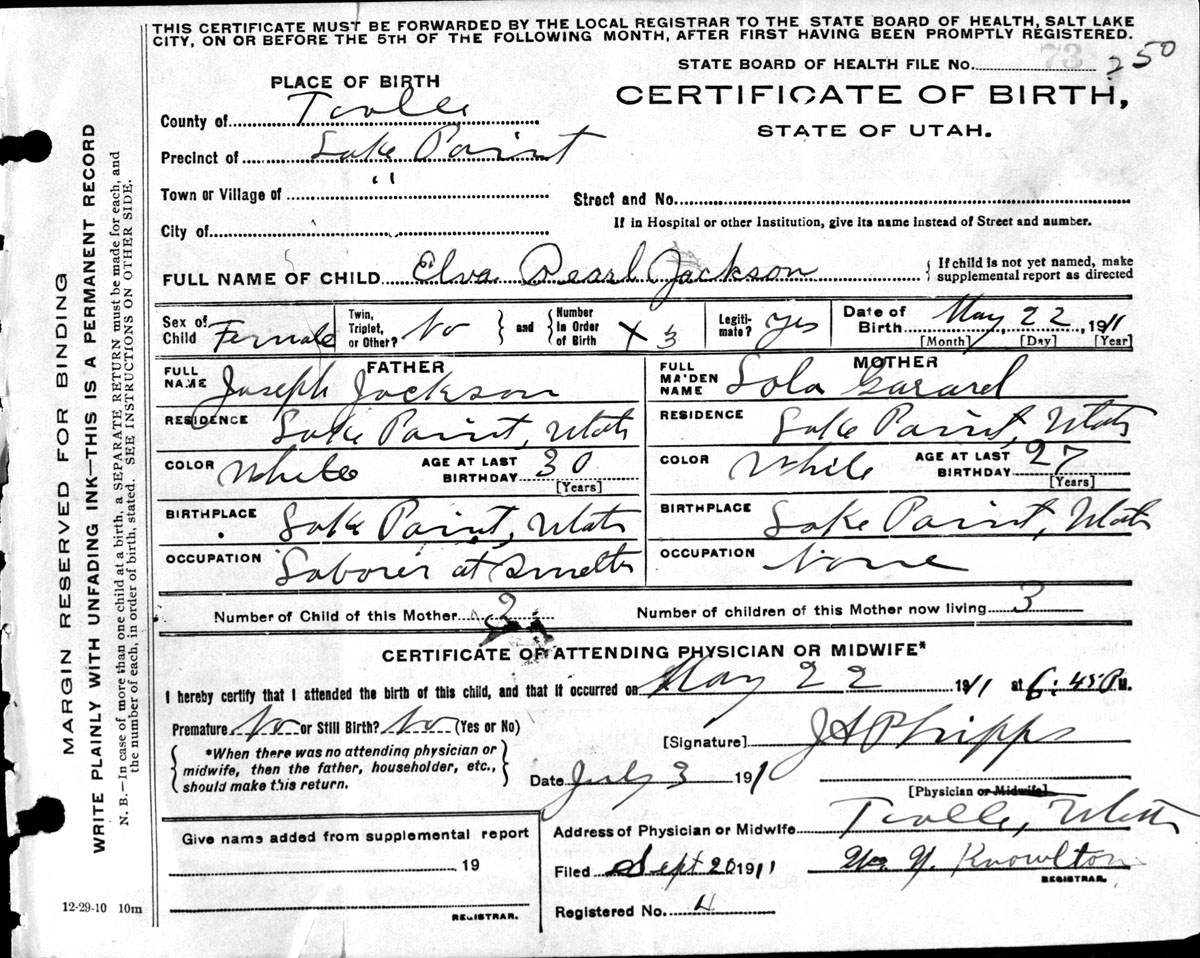 THIS CERTIFICATE MUST BE FORWARDED BY THE LOCAL REGISTRAR TO THE STATE BOARD OF HEALTH, SALT LAKE
CITY, ON OR BEFORE THE 5TH OF THE FOLLOWING MONTH, AFTER FIRST HAVING BEEN PROMPTLY REGISTERED.
STATE BOARD OF HEALTH FILE No. 73 250
PLACE OF BIRTH
CERTIFICATE OF BIRTH,
STATE OF UTAH.
County of Tooele
Precinct of Lake Point
Town or Village of "
Street and No.
City of
If in Hospital or other Institution, give its name instead of Street and number.
FULL NAME OF CHILD Elva Pearl Jackson
{ If child is not yet named, make
supplemental report as directed
Sex of Child Female Twin, Triplet, or Other? No } and { Number in Order of Birth X 3 Legiti-mate? yes Date of Birth May 22, 1911
[Month] [Day] [Year]
FATHER MOTHER
FULL NAME Joseph Jackson FULL MAIDEN NAME Lola
RESIDENCE Lake Point, Utah RESIDENCE Lake Point, Utah
COLOR White AGE AT LAST BIRTHDAY 30 [Years] COLOR White AGE AT LAST BIRTHDAY 27 [Years]
BIRTHPLACE Lake Point, Utah BIRTHPLACE Lake Point, Utah
OCCUPATION Laborer at Smelter OCCUPATION None
Number of Child of this Mother 3 Number of children of this Mother now living 3
CERTIFICATE OF ATTENDING PHYSICIAN OR MIDWIFE*
I hereby certify that I attended the birth of this child, and that it occurred on May 22 1911 at 6:45 P M.
Premature No or Still Birth? No (Yes or No)
[Signature] J A Phipps
{ *When there was no attending physician or
midwife, then the father, householder, etc.,
should make this return. }
Date July 3 1911
[Physician or Midwife]
Give name added from supplemental report
Address of Physician or Midwife Tooele, Utah
19
Filed Sept 20 1911 Knowlton
REGISTRAR.
Registered No. 4
REGISTRAR.
12-29-10 10m
MARGIN RESERVED FOR BINDING
WRITE PLAINLY WITH UNFADING INK—THIS IS A PERMANENT RECORD
N. B.—In case of more than one child at a birth, a SEPARATE RETURN must be made for each, and
the number of each, in order of birth, stated. SEE INSTRUCTIONS ON OTHER SIDE.